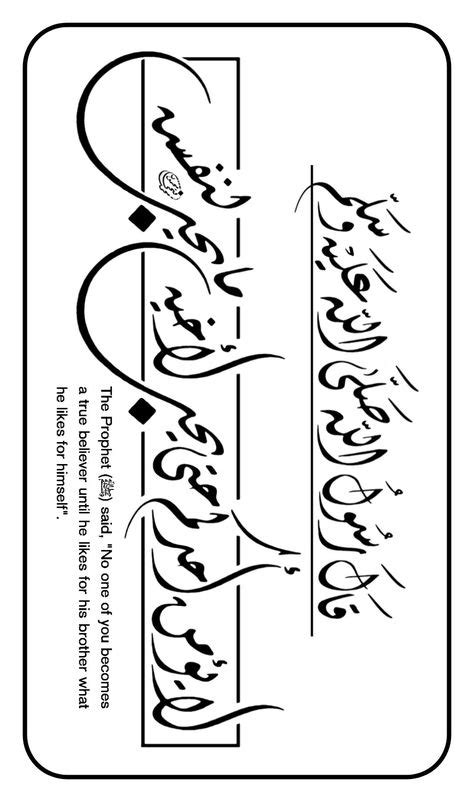 قَالَ رَسُولُ اللّٰه صَلَّى اللّٰه عَلَيْهِ وَسَلَّم
لا يؤمن أحدكم حتى يحب لأخيه ما يحب لنفسه
The Prophet (ﷺ) said, "No one of you becomes
a true believer until he likes for his brother what
he likes for himself".